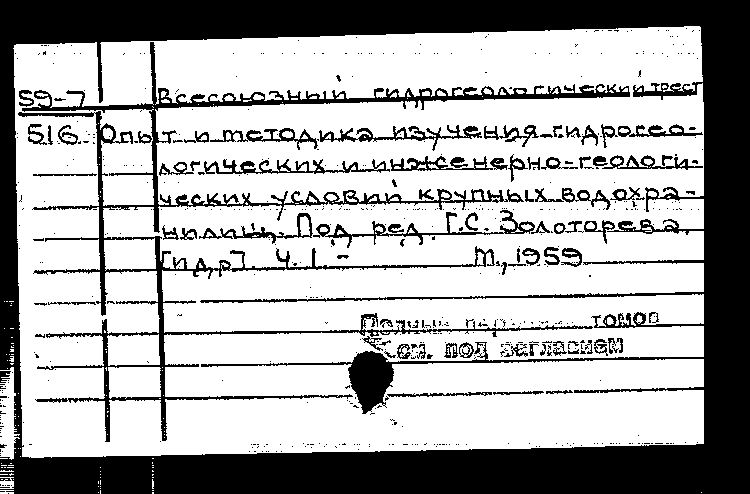 59-7 Всесоюзный гидрогеологический трест
516 Опыт и методика изучения гидрогео-
логических и инженерно-геологи-
ческих условий крупных водохра-
нилищ. Под ред. Г.С. Золоторева.
[и др]. Ч. I. - М., 1959
Полный томов
см. под заглавием